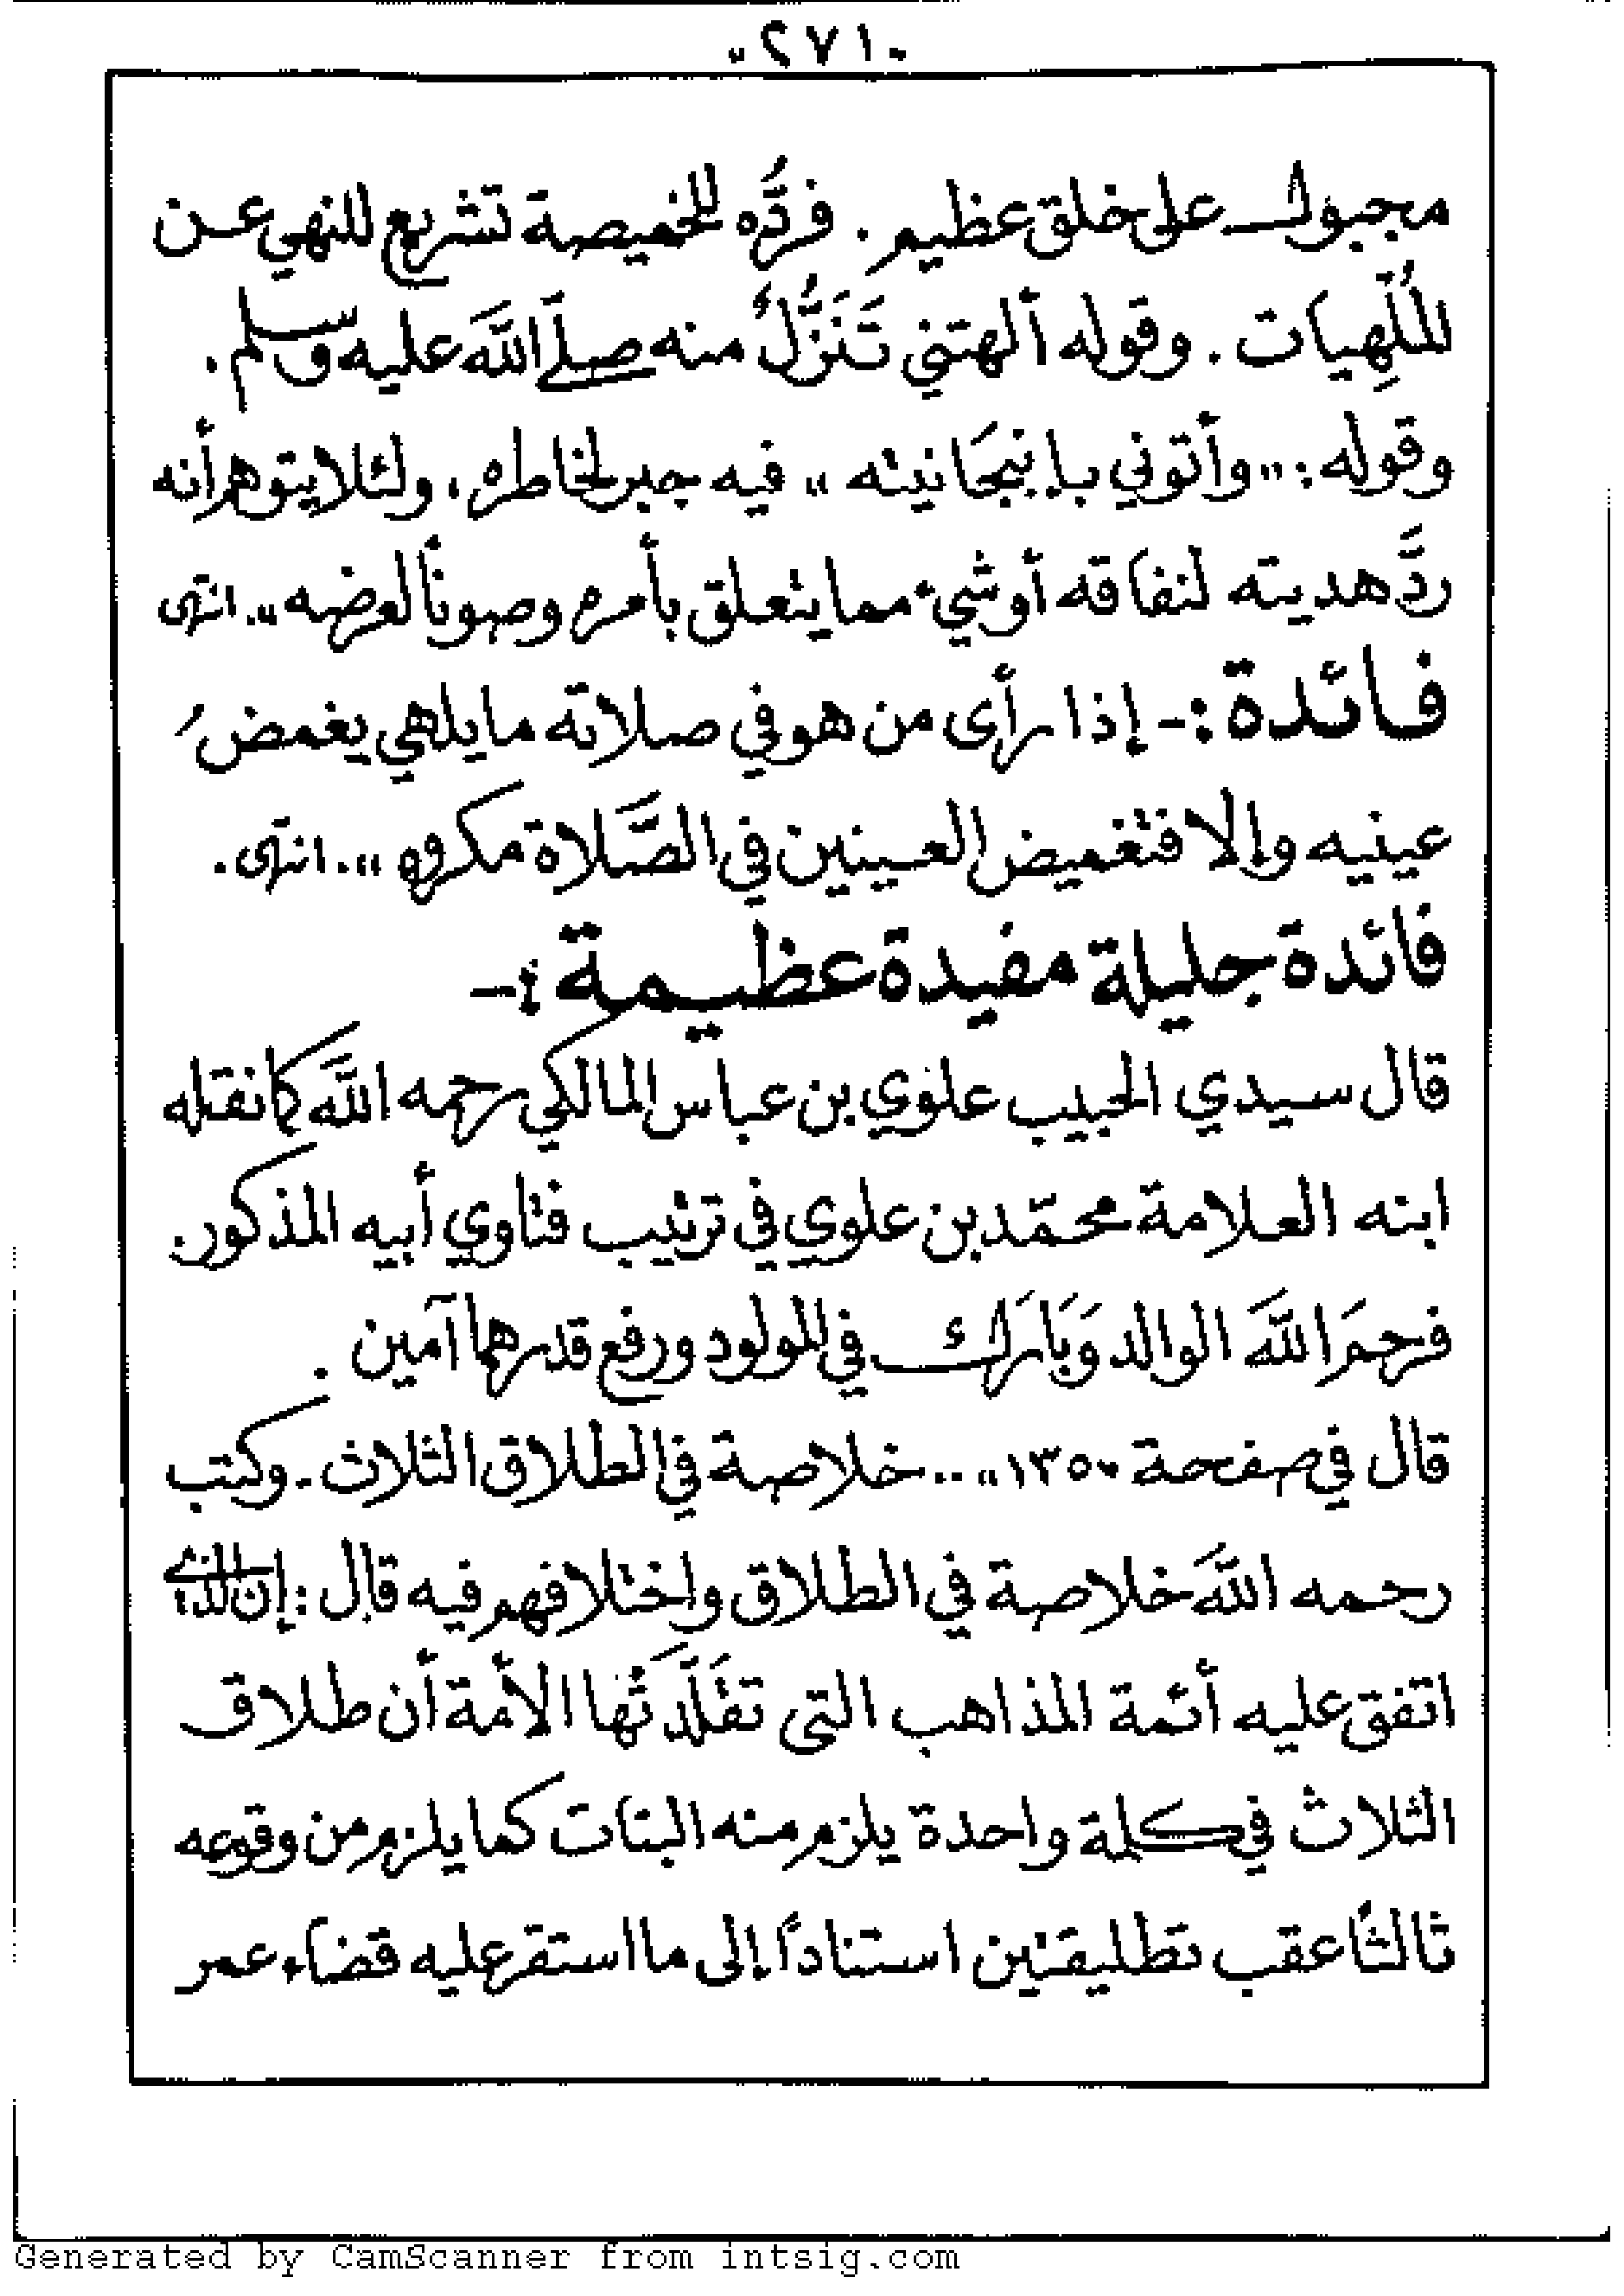 ٢٧١
مجبول على خلق عظيم . فردُّه للخميصة تشريع للنهي عن
المُلْهِيات . وقوله ألهتني تَنَزُّلٌ منه صلَّى اللهَ عليه وسلم .
وقوله : ,,وأتوني بإنبجَانيته ,, فيه جبر لخاطره ، ولئلا يتوهم أنه
ردَّ هديته لنفاقه أو شيء مما يتعلق بأمره وصوناً لعرضه ,,. انتهى
فائدة :- إذا رأى من هو في صلاته ما يلهي يغمضُ
عينيه وإلا فتغميض العينين في الصَّلاة مكروه ,,. انتهى .
فائدة جليلة مفيدة عظيمة :-
قال سيدي الحبيب علوي بن عباس المالكي رحمه اللهَ كما نقله
ابنه العلامة محمّد بن علوي في ترتيب فتاوي أبيه المذكور .
فرحمَ اللهَ الوالد وَبَارَك في المولود ورفع قدرهما آمين .
قال في صفحة ١٣٥ ,, .. خلاصة في الطلاق الثلاث - وكتب
رحمه اللهَ خلاصة في الطلاق واختلافهم فيه قال : إن الذي
اتفق عليه أئمة المذاهب التى تقَلَّدَتْها الأمة أن طلاق
الثلاث في كلمة واحدة يلزم منه البتات كما يلزم من وقوعه
ثالثاً عقب تطليقتين استناداً إلى ما استقر عليه قضاء عمر
Generated by CamScanner from intsig.com